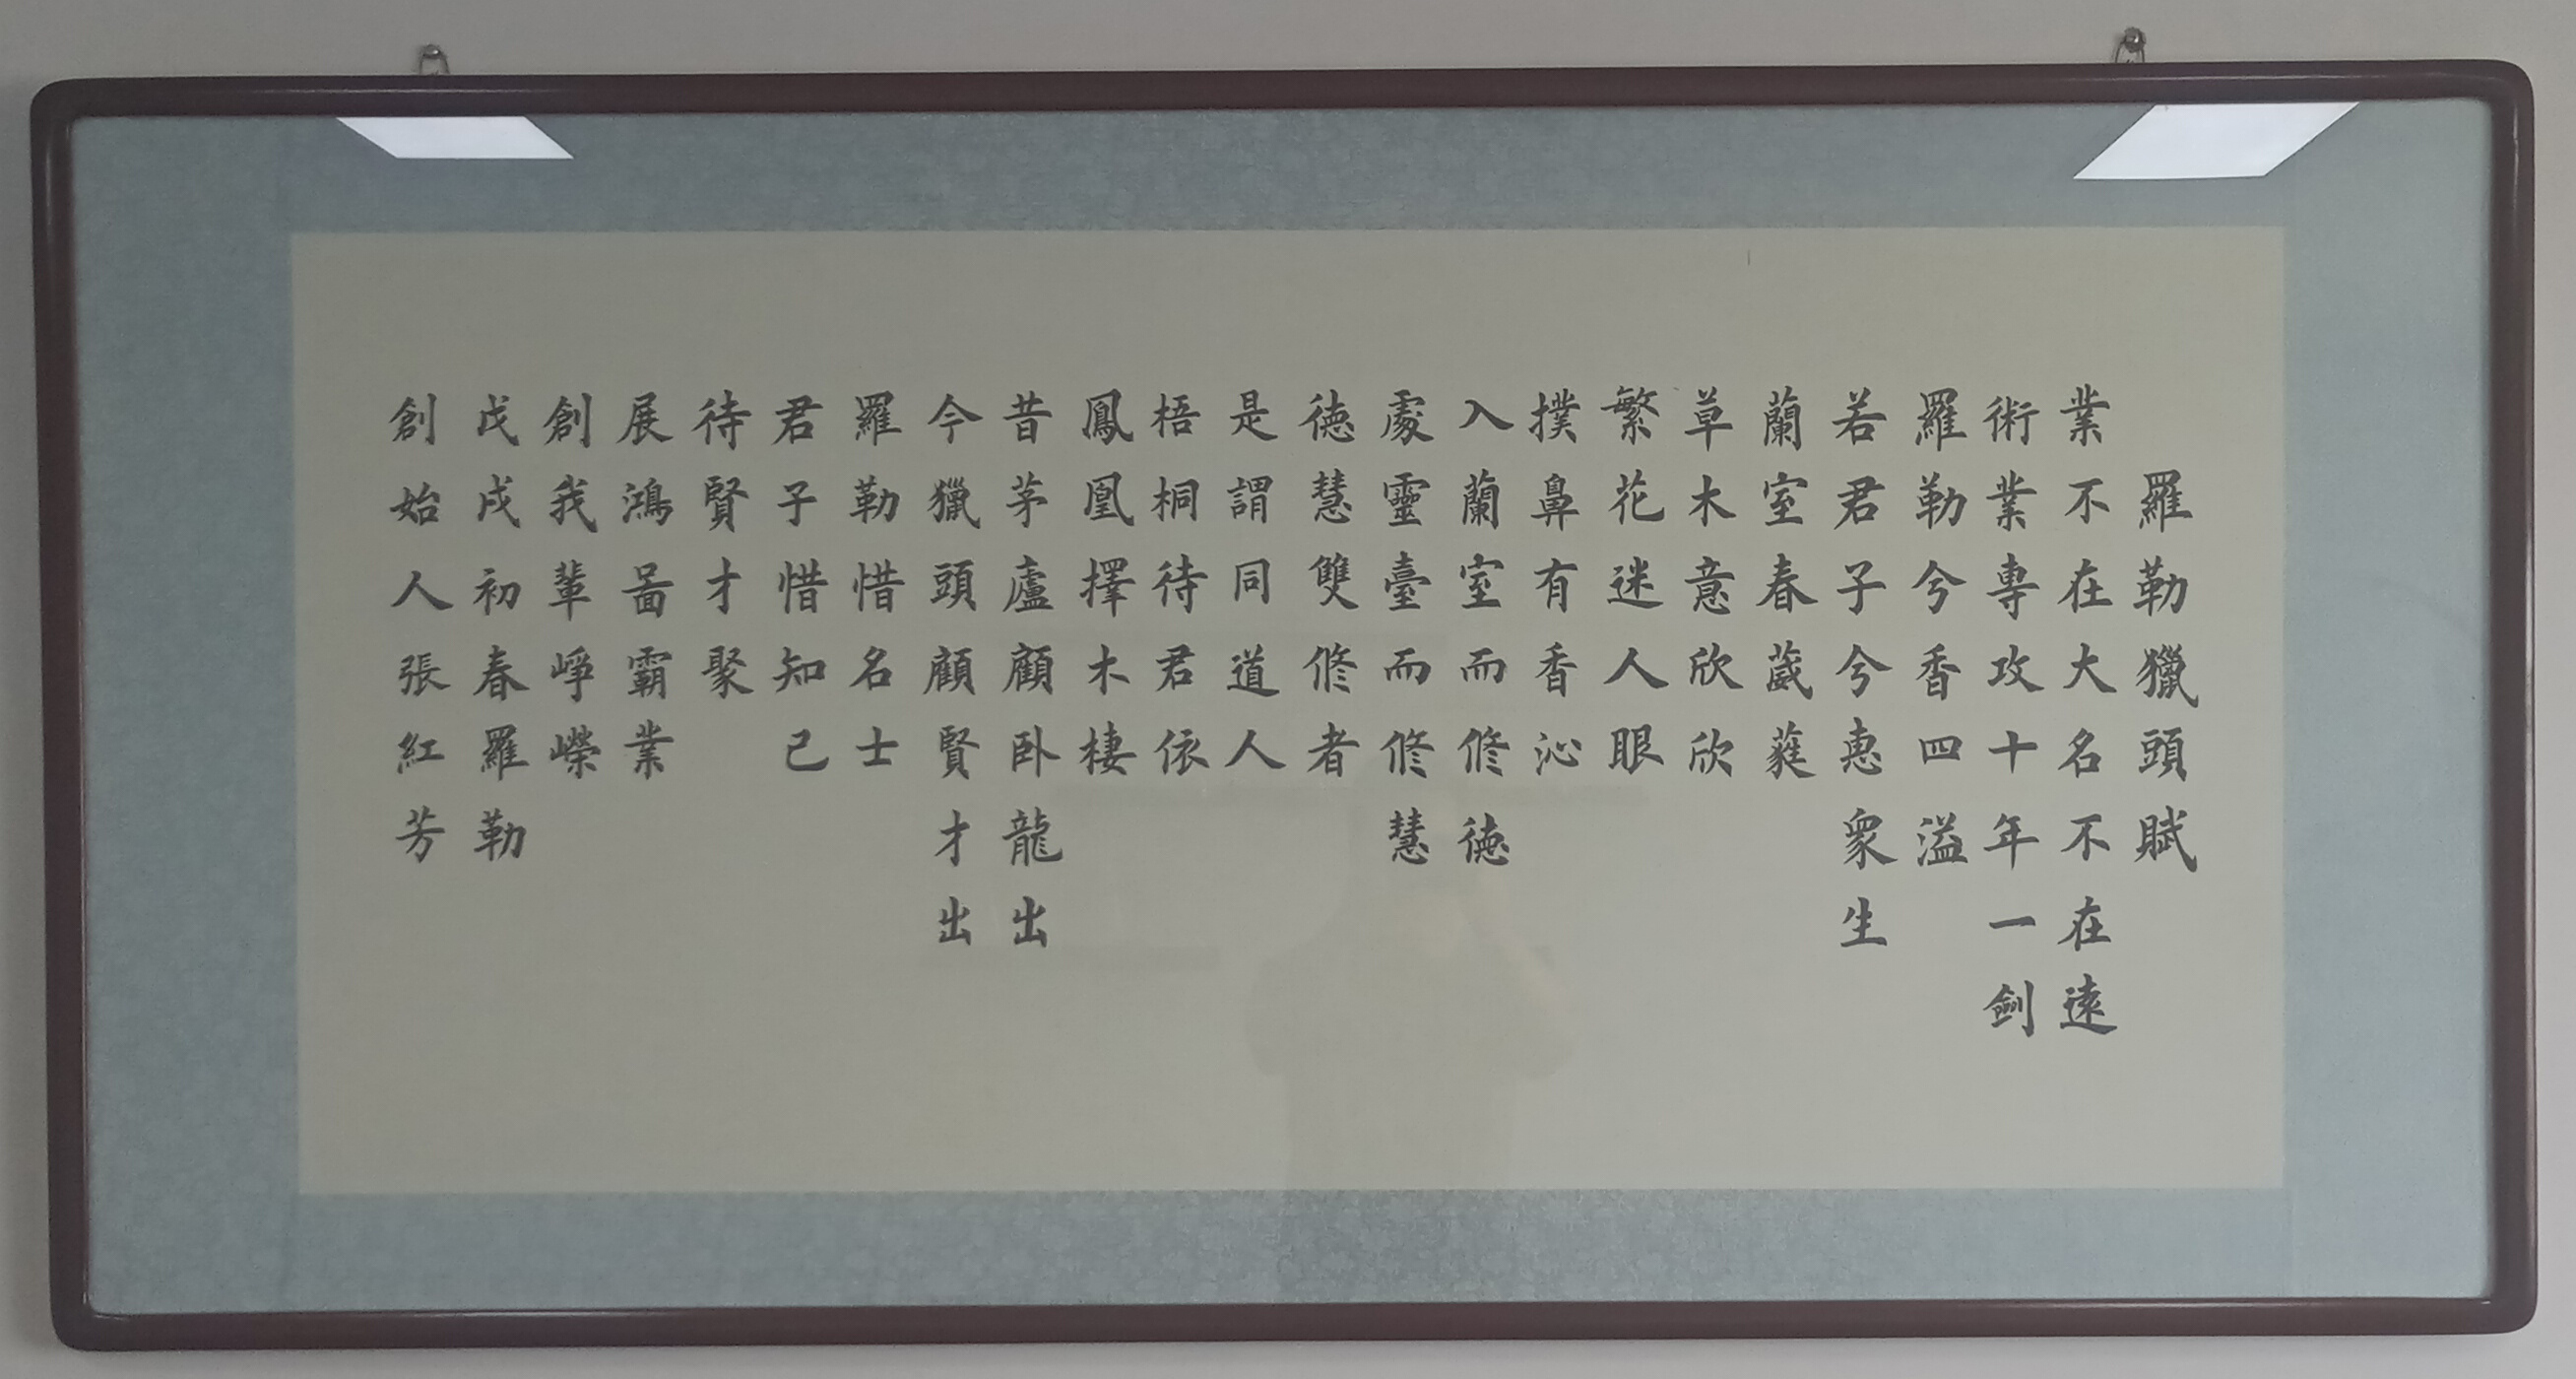 羅勒獵頭賦
業不在大名不在遠
術業專攻十年一劍
羅勒兮香四溢
若君子兮惠衆生
蘭室春葳蕤
草木意欣欣
繁花迷人眼
撲鼻有香沁
入蘭室而修德
處靈臺而修慧
德慧雙修者
是謂同道人
梧桐待君依
鳳凰擇木棲
昔茅廬顧卧龍出
今獵頭顧賢才出
羅勒惜名士
君子惜知己
待賢才聚
展鴻啚霸業
創我輩崢嶸
戊戌初春羅勒
創始人張紅芳